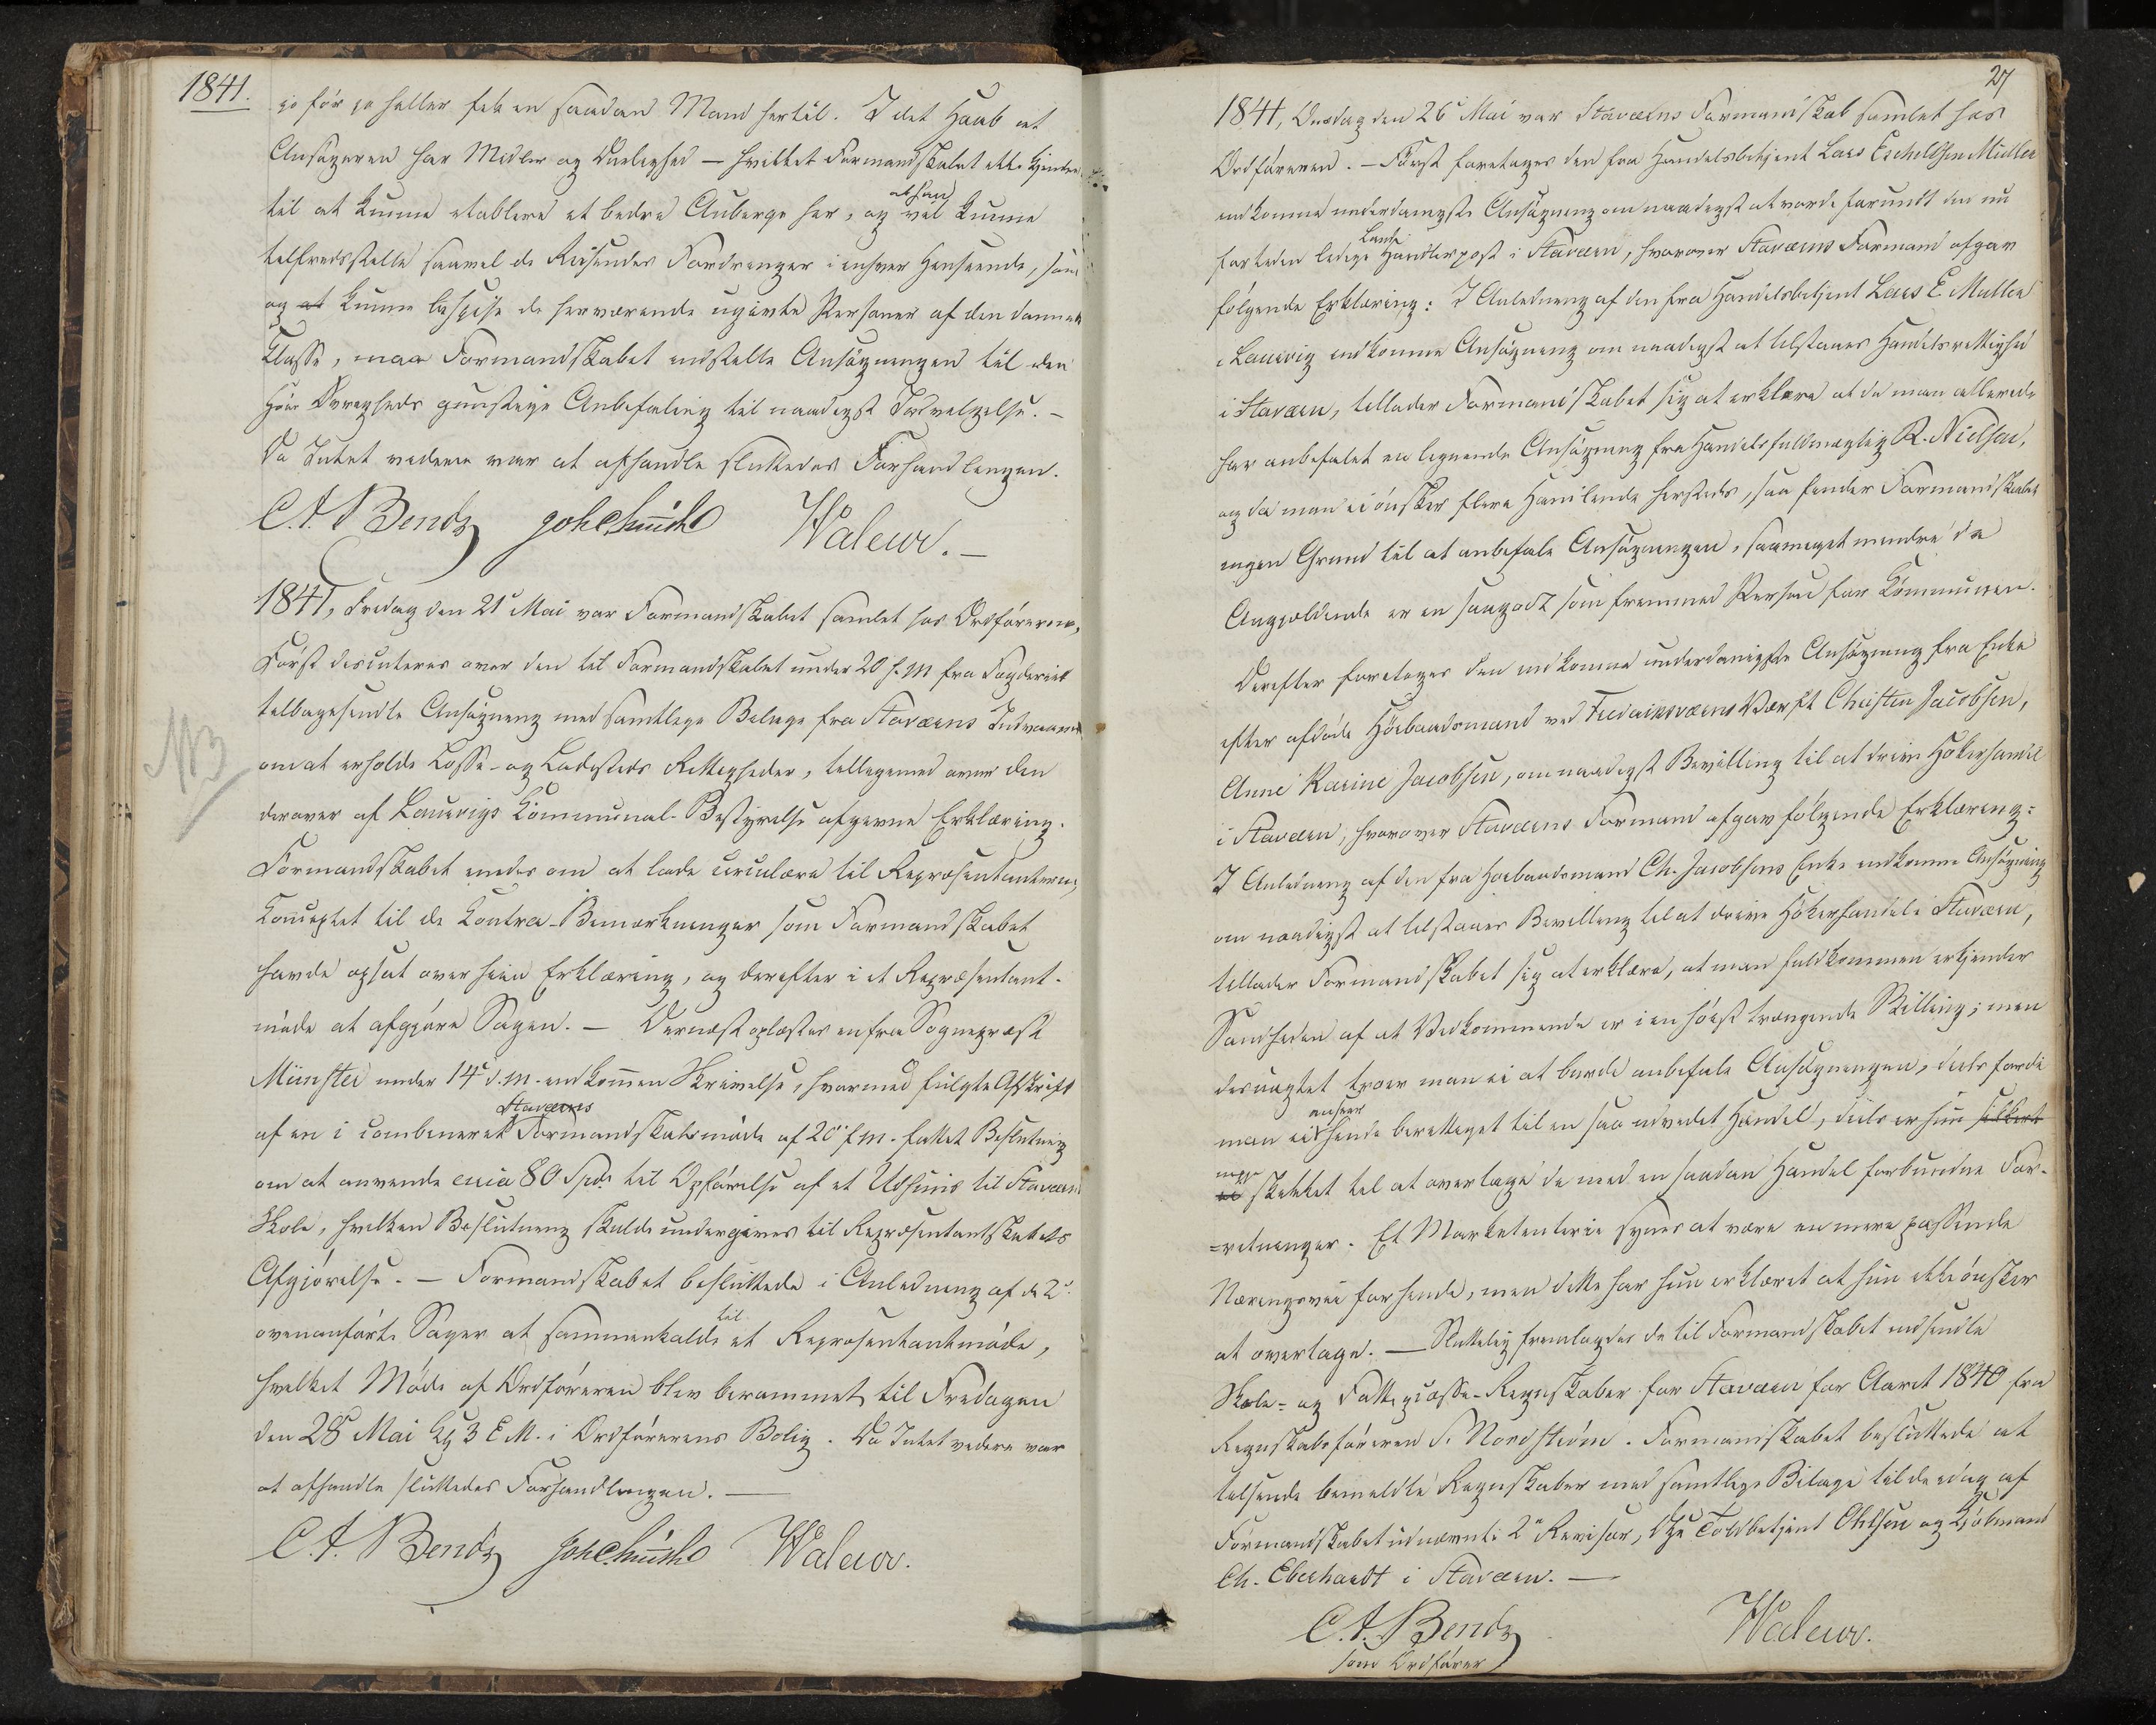 1841.
jo før jo heller fik en saadan Mand hertil. I det Haab at
Ansøgeren har Midler og Duelighed — hvilket Formandskabet ikke kjender
til at kunne etablere et bedre Auberge her, og vil kunne
at han
tilfredsstille saavel de Reisendes Fordringer i enhver Henseende, som
og at kunne bespise de herværende ugivte Personer af den dannede
Klasse, maa Formandskabet indstille Ansøgningen til den
høie Øvrigheds gunstige Anbefaling til naadigst Indvilgelse. —
Da Intet videre var at afhandle sluttedes Forhandlingen.
C.A. Bentz Joh Schmidt Waleur. —
1841, Fredag den 21de Mai var Formandskabet samlet hos Ordføreren,
Først discuteres over den til Formandskabet under 20 f.M fra Fogderiet
tilbagesendte Ansøgning med samtlige Bilage fra Staværns Indvaanere
om at erholde Losse- og Ladesteds Rettigheder, tilligemed over den
derover af Laurvigs Communal-Bestyrelse afgivne Erklæring.
NB
Formandskabet enedes om at lade circulere til Repræsentanterne,
Conceptet til de Contra-Bemærkninger som Formandskabet
havde opsat over hiin Erklæring, og derefter i et Repræsentant-
møde at afgjøre Sagen. — Dernæst oplæstes en fra Sognepræst
Münster under 14de d.M. indkommen Skrivelse, hvormed fulgte Afskrift
af en i combineret Formandskabsmøde af 20de f.M. fattet Beslutning
Staværns
om at anvende circa 80 Spd. til Opførelse af et Udhuus til Staværns
Skole, hvilken Beslutning skulde undergives til Repræsentantskabets
Afgjørelse. — Formandskabet besluttede i Anledning af de 2de
ovenanførte Sager at sammenkalde til et Repræsentantmøde,
hvilket Møde af Ordføreren blev berammet til Fredagen
den 28 Mai Kl 3 E.M. i Ordførerens Bolig. Da Intet videre var
at afhandle sluttedes Forhandlingen. —
C.A. Bentz Joh Schmidt Waleur.
27
1841, Onsdag den 26de Mai var Staværns Formandskab samlet hos
Ordføreren. — Først foretages den fra Handelsbetjent Lars Eschelsen Müller
indkomne underdanigste Ansøgning om naadigst at vorde forundt den nu
for tiden ledige Landhandlerpost i Staværn, hvorover Staværns Formand afgav
følgende Erklæring: I Anledning af den fra Handelsbetjent Lars E. Müller
i Laurvig indkomne Ansøgning om naadigst at tilstaaes Handelsrettighed
i Staværn, tillader Formandskabet sig at erklære at da man allerede
har anbefalet en lignende Ansøgning fra Handelsfuldmægtig R. Nielsen,
og da man ei ønsker flere Handlende hersteds, saa finder Formandskabet
ingen Grund til at anbefale Ansøgningen, saameget mindre da
Angjeldende er en saagodt som fremmed Person for Communen.
Derefter foretages den indkomne underdanigste Ansøgning fra Enke
efter afdøde Høibaadsmand ved Frederiksværns Værft Christen Jacobsen,
Anne Karine Jacobsen, om naadigst Bevilling til at drive Høkerhandel
i Staværn, hvorover Staværns Formand afgav følgende Erklæring:
I Anledning af den fra Høibaadsmand Ch. Jacobsens Enke indkomne Ansøgning
om naadigst at tilstaaes Bevilling til at drive Høkerhandel i Staværn,
tillader Formandskabet sig at erklære, at man fuldkommen erkjender
Sandheden af at Vedkommende er i en høist trængende Stilling; men
desuagtet troer man ei at burde anbefale Ansøgningen, deels fordi
man ei anseer hende berettiget til en saa udvidet Handel, deels er hun
skikket til at overtage de med en saadan Handel forbundne For-
=retninger. Et Marketenterie synes at være en mere passende
Næringsvei for hende, men dette har hun erklæret at hun ikke ønsker
at overtage. — Sluttelig fremlagdes de til Formandskabet indsendte
Skole- og Fattigcasse-Regnskaber for Staværn for Aaret 1840 fra
Regnskabsføreren S. Nordstrøm. Formandskabet besluttede at
tilsende bemeldte Regnskaber med samtlige Bilage til de idag af
Formandskabet udnævnte 2de Revisorer, DHr Toldbetjent Ohlsen og Kjøbmand
Ch. Eberhardt i Staværn. —
C.A. Bentz Waleur.
som Ordfører